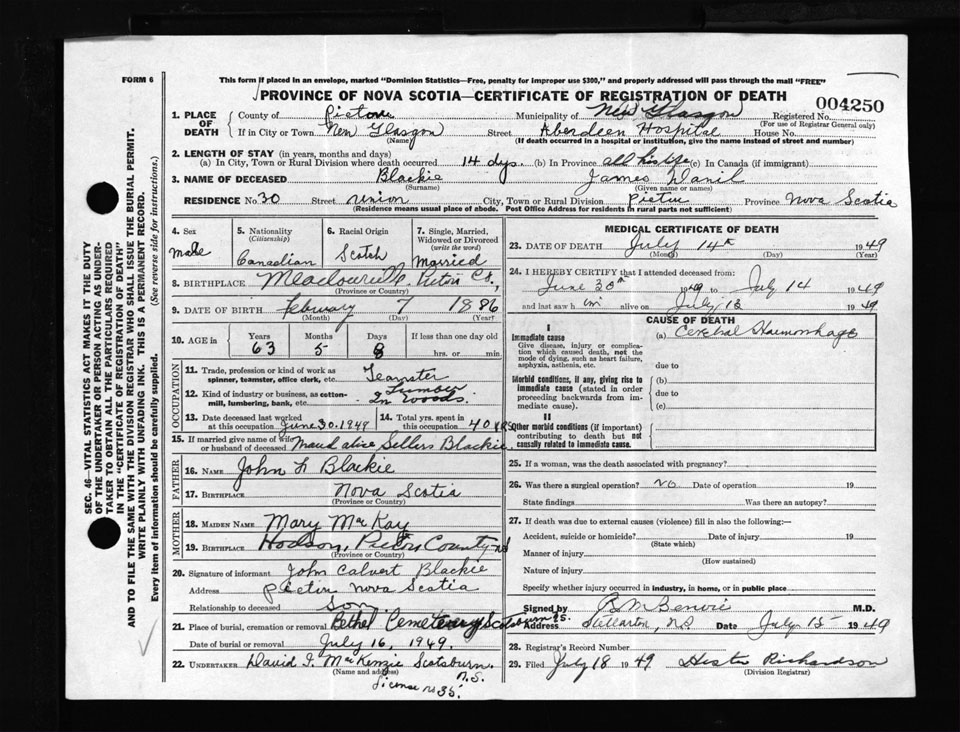 FORM 6
This form if placed in an envelope, marked "Dominion Statistics—Free, penalty for improper use $300," and properly addressed will pass through the mail "FREE"
PROVINCE OF NOVA SCOTIA—CERTIFICATE OF REGISTRATION OF DEATH
004250
1. PLACE OF DEATH County of Pictou Municipality of New Glasgow Registered No.
(For use of Registrar General only)
If in City or Town New Glasgow Street Aberdeen Hospital House No.
(Name) (If death occurred in a hospital or institution, give the name instead of street and number)
2. LENGTH OF STAY (in years, months and days)
(a) In City, Town or Rural Division where death occurred 14 dys. (b) In Province all his life (c) In Canada (if immigrant)
3. NAME OF DECEASED Blackie James Danil
(Surname) (Given name or names)
RESIDENCE No. 30 Street Union City, Town or Rural Division Pictou Province Nova Scotia
(Residence means usual place of abode. Post Office Address for residents in rural parts not sufficient)
4. Sex Male
5. Nationality (Citizenship) Canadian
6. Racial Origin Scotch
7. Single, Married, Widowed or Divorced (write the word) Married
8. BIRTHPLACE Meadowville Pictou Co.,
(Province or Country)
9. DATE OF BIRTH Febuary 7 1886
(Month) (Day) (Year)
10. AGE in Years Months Days If less than one day old
63 5 8 hrs. or min.
OCCUPATION
11. Trade, profession or kind of work as spinner, teamster, office clerk, etc. Teamster
12. Kind of industry or business, as cotton-mill, lumbering, bank, etc. Lumber In Woods.
13. Date deceased last worked at this occupation June 30. 1949
14. Total yrs. spent in this occupation 40 YRS
15. If married give name of wife or husband of deceased Maud alice Sellers Blackie
FATHER
16. NAME John Blackie
17. BIRTHPLACE Nova Scotia
(Province or Country)
MOTHER
18. MAIDEN NAME Mary MacKay
19. BIRTHPLACE Hodson, Pictou County NS
(Province or Country)
20. Signature of informant John Calvert Blackie
Address Pictou Nova Scotia
Relationship to deceased Son
21. Place of burial, cremation or removal Bethel Cemetery Scotsburn NS.
Date of burial or removal July 16, 1949.
22. UNDERTAKER David MacKenzie Scotsburn. N.S.
(Name and address)
License N 35.
MEDICAL CERTIFICATE OF DEATH
23. DATE OF DEATH July 14th 1949
(Month) (Day) (Year)
24. I HEREBY CERTIFY that I attended deceased from:
June 30th 1949 to July 14 1949
and last saw him alive on July 13 1949
CAUSE OF DEATH
I
Immediate cause (a) Cerebral Haemorrhage
Give disease, injury or complication which caused death, not the mode of dying, such as heart failure, asphyxia, asthenia, etc.
due to
Morbid conditions, if any, giving rise to immediate cause (stated in order proceeding backwards from immediate cause).
(b)
due to
(c)
II
Other morbid conditions (if important) contributing to death but not causally related to immediate cause.
25. If a woman, was the death associated with pregnancy?
26. Was there a surgical operation? No Date of operation 19
State findings Was there an autopsy?
27. If death was due to external causes (violence) fill in also the following:—
Accident, suicide or homicide? Date of injury 19
(State which)
Manner of injury
(How sustained)
Nature of injury
Specify whether injury occurred in industry, in home, or in public place
Signed by B M Benvie M.D.
Address Stellarton, NS Date July 15 1949
28. Registrar's Record Number
29. Filed July 18 1949 Hester Richardson
(Division Registrar)
SEC. 46—VITAL STATISTICS ACT MAKES IT THE DUTY
OF THE UNDERTAKER OR PERSON ACTING AS UNDER-
TAKER TO OBTAIN ALL THE PARTICULARS REQUIRED
IN THE "CERTIFICATE OF REGISTRATION OF DEATH"
AND TO FILE THE SAME WITH THE DIVISION REGISTRAR WHO SHALL ISSUE THE BURIAL PERMIT.
WRITE PLAINLY WITH UNFADING INK. THIS IS A PERMANENT RECORD.
Every item of information should be carefully supplied. (See reverse side for instructions.)